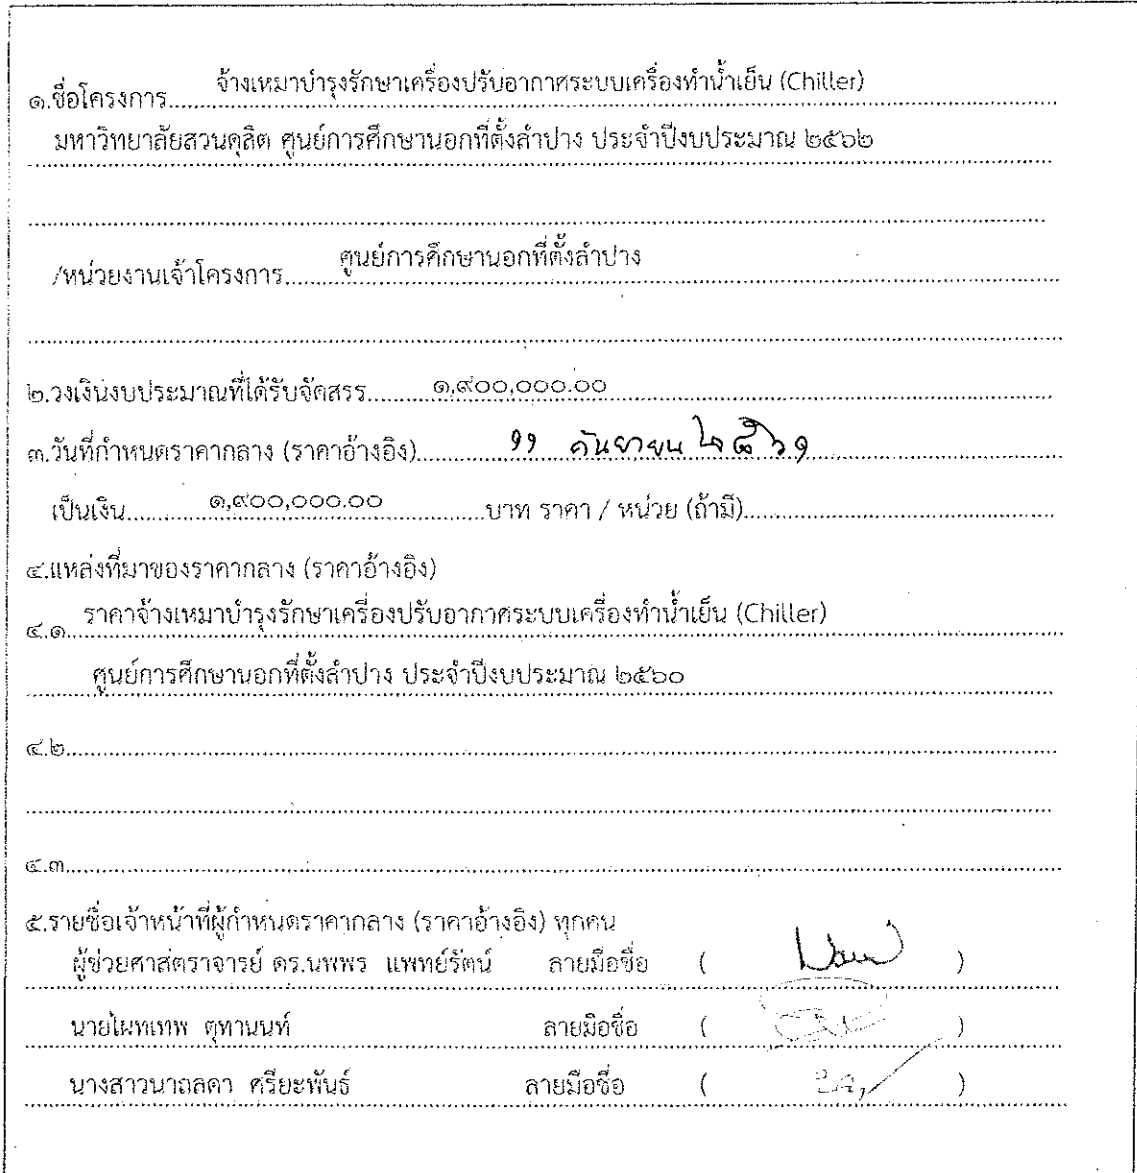 ๑.ชื่อโครงการ.....จ้างเหมาบำรุงรักษาเครื่องปรับอากาศระบบเครื่องทำน้ำเย็น (Chiller)
มหาวิทยาลัยสวนดุสิต ศูนย์การศึกษานอกที่ตั้งลำปาง ประจำปีงบประมาณ ๒๕๖๒
/หน่วยงานเจ้าโครงการ.....ศูนย์การศึกษานอกที่ตั้งลำปาง
๒.วงเงินงบประมาณที่ได้รับจัดสรร.....๑,๙๐๐,๐๐๐.๐๐
๓.วันที่กำหนดราคากลาง (ราคาอ้างอิง).....๑๑ กันยายน ๒๕๖๑
เป็นเงิน.....๑,๙๐๐,๐๐๐.๐๐.....บาท ราคา / หน่วย (ถ้ามี).....
๔.แหล่งที่มาของราคากลาง (ราคาอ้างอิง)
๔.๑.ราคาจ้างเหมาบำรุงรักษาเครื่องปรับอากาศระบบเครื่องทำน้ำเย็น (Chiller)
ศูนย์การศึกษานอกที่ตั้งลำปาง ประจำปีงบประมาณ ๒๕๖๐
๔.๒.....
๔.๓.....
๕.รายชื่อเจ้าหน้าที่ผู้กำหนดราคากลาง (ราคาอ้างอิง) ทุกคน
ผู้ช่วยศาสตราจารย์ ดร.นพพร แพทย์รัตน์ ลายมือชื่อ ( )
นายไผทเทพ ตุทานนท์ ลายมือชื่อ ( )
นางสาวนาถลดา ศรียะพันธ์ ลายมือชื่อ ( )